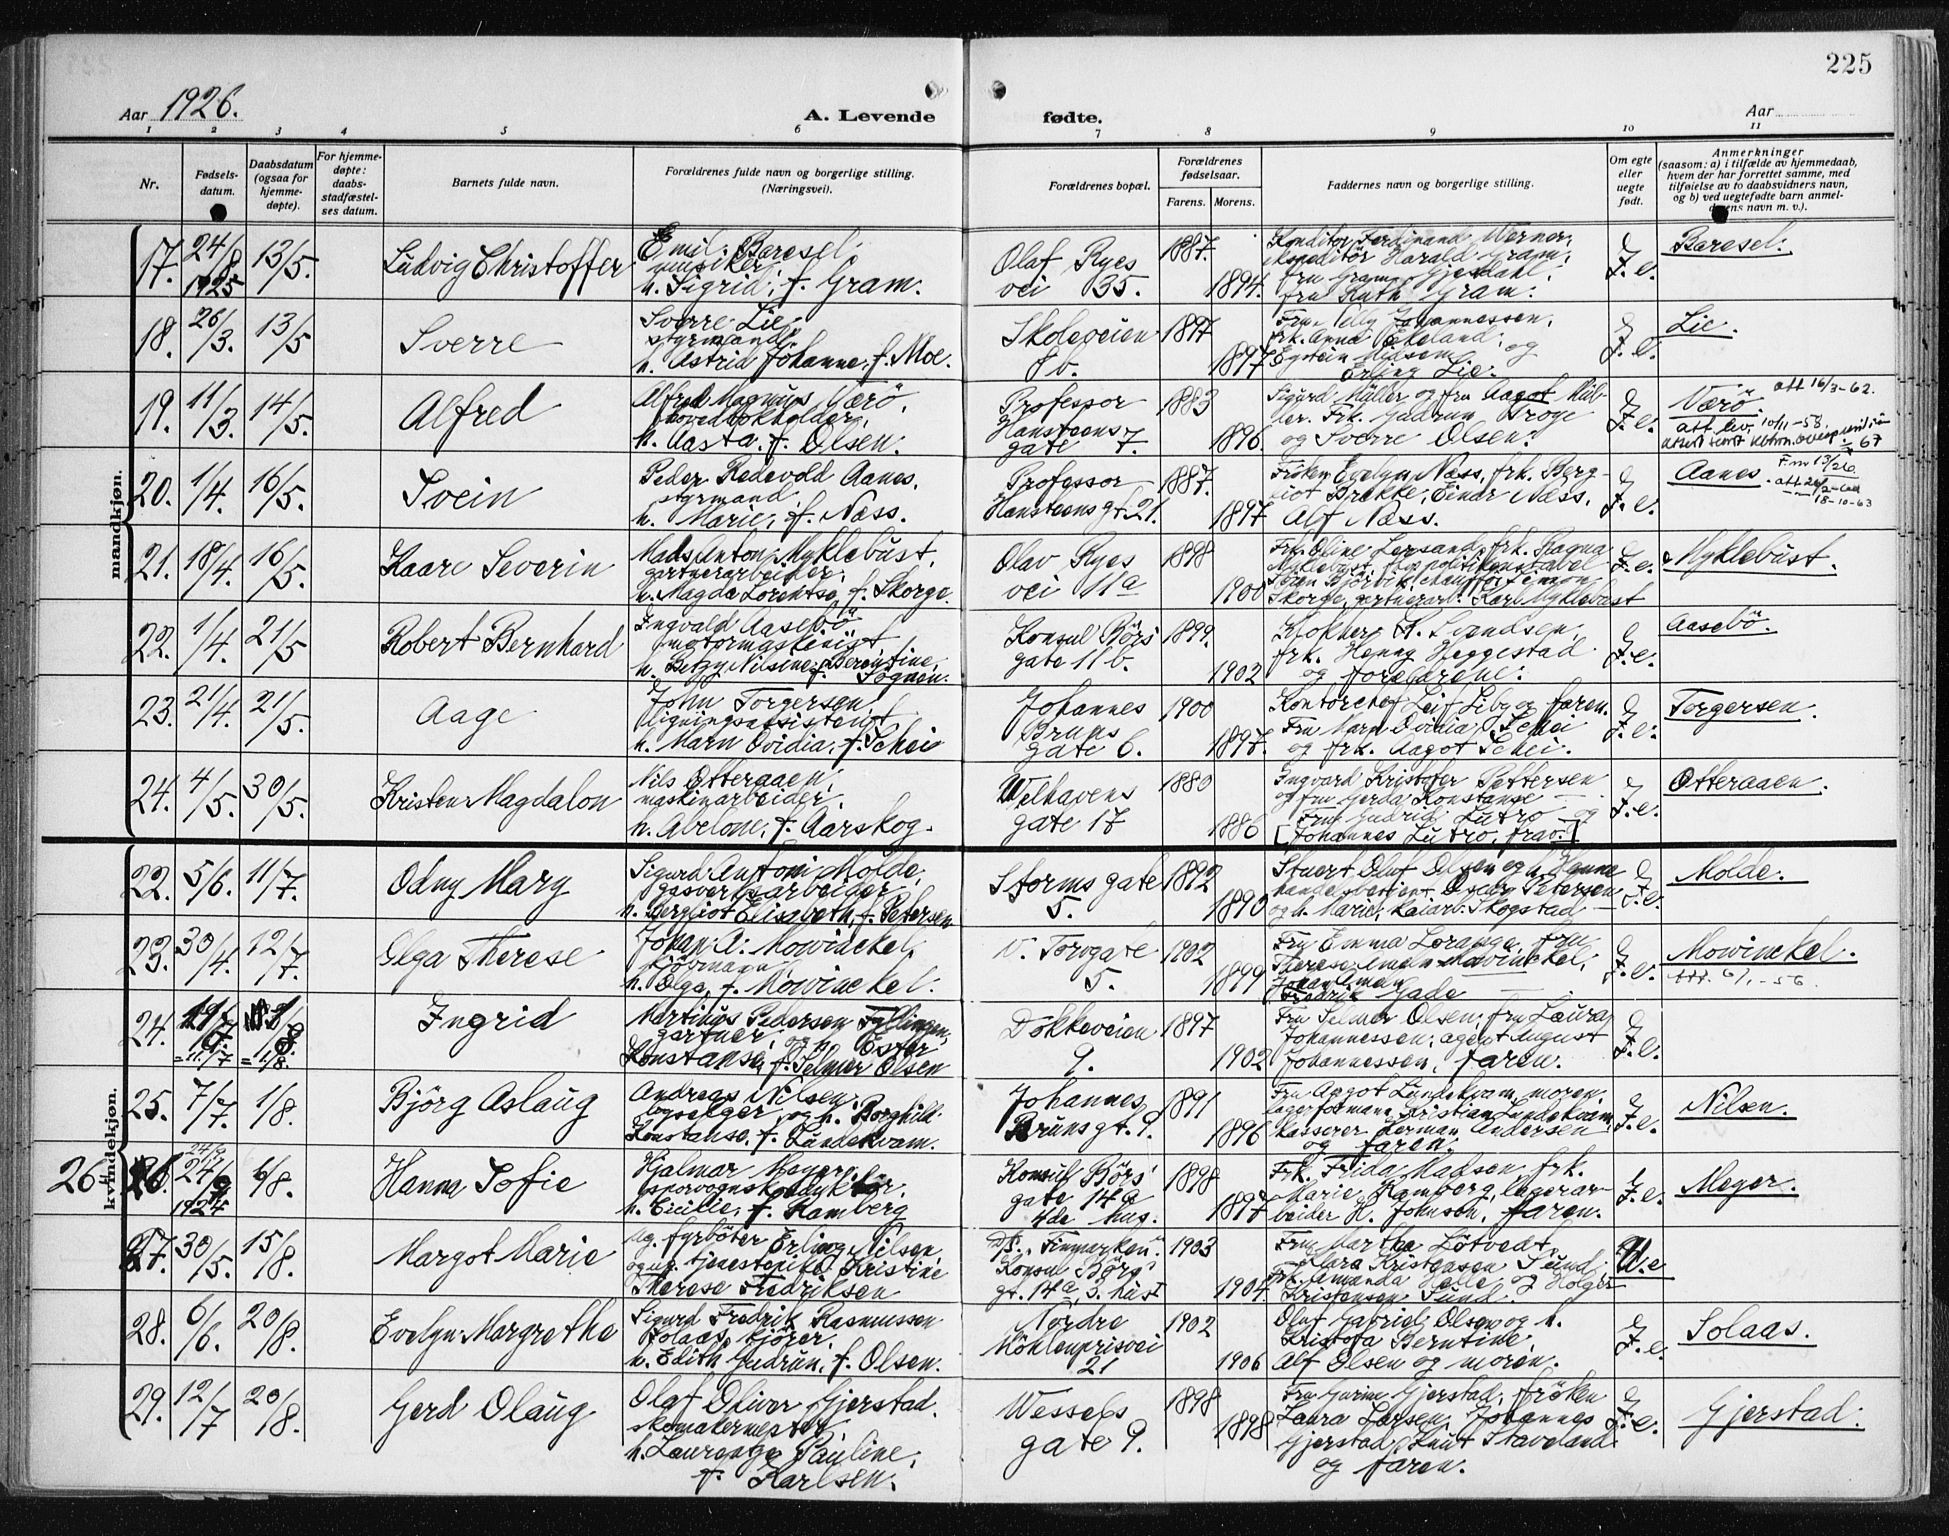 225
Aar 1926.
A. Levende
fødte.
Aar
1 2 3 4 5 6 7 8 9 10 11
Nr.
Fødsels-
datum.
Daabsdatum
(ogsaa for
hjemme-
døpte).
For hjemme-
døpte:
daabs-
stadfæstel-
ses datum.
Barnets fulde navn.
Forældrenes fulde navn og borgerlige stilling.
(Næringsvei).
Forældrenes bopæl.
Forældrenes
fødselsaar.
Farens. Morens.
Faddernes navn og borgerlige stilling.
Om egte
eller
uegte
født.
Anmerkninger
(saasom: a) i tilfælde av hjemmedaab,
hvem der har forrettet samme, med
tilføielse av to daabsvidners navn,
og b) ved uegtefødte barn anmel-
derens navn m. v.).
mandkjøn.
17. 24/8 1925 13/5. Ludvig Christoffer
Emil Baresel
musiker,
h. Sigrid, f. Gram.
Olaf Ryes
vei 35.
1887.
1894.
Konditor Ferdinand Werner,
ekspeditör Harald Gram,
fru Gram Gjesdahl,
fru Ruth Gram.
F. e.
Baresel.
18. 26/3. 13/5 Sverre
Sverre Lie,
styrmand,
h. Astrid Johanne, f. Moe.
Skoleveien
8 b.
1897
1897
Fru Elly Johannessen,
frk. Anna Eikeland,
og
Erling Lie.
F. e.
Lie.
19. 11/3. 14/5. Alfred
Alfred Magnus Værö,
hovedbokholder,
h. Aasta, f. Olsen.
Professor
Hansteens
gate 7.
1883
1896.
Sigurd Müller og fru Aagot Mül-
ler. Frk. Gudrun Troye
og Sverre Olsen.
F. e.
Værö att 16/3-62.
att. lev. 10/11-58.
67
20. 1/4. 16/5. Svein
Peder Redevold Aanes,
styrmand
h. Marie, f. Næss.
Professor
Hansteens gt 21.
1887.
1897
Fröken Evelyn Næss, frk. Berg-
liot Brekke, Einar Næss,
Alf Næss.
F. e.
Aanes. F.m 13/26
18-10-63
21. 18/4. 16/5. Kaare Severin
Mads Anton Myklebust,
gartnerarbeider,
h. Magda Lorentse, f. Skorge.
Olav Ryes
vei 11a
1898
1900
Fru Oline Lersand, frk. Ragna
Myklebust,
Johan Björvik, chaufför Simon
Skorge, gartnerarb. Karl Myklebust
F. e.
Myklebust.
22. 1/4. 21/5 Robert Bernhard
Ingvald Aasebö
motormaskinist,
h. Betzy Nilsine Berentine,
f. Sognen.
Konsul Börs
gate 11 b.
1899.
1902
Klokker K. Svendsen,
frk. Henny Heggestad
og forældrene.
F. e.
Aasebö.
23. 21/4. 21/5 Aage
John Torgersen,
ligningsassistent
h. Marn Ovidia, f. Schei
Johannes
Bruns
gate 6.
1900
1897.
Kontorchef Leif Liby og faren.
Fru Marn Ovidia Schei
og frk. Aagot Schei.
F. e.
Torgersen.
24. 4/5. 30/5. Kristen Magdalon
Nils Otteraaen,
maskinarbeider.
h. Abelone, f. Aarskog.
Welhavens
gate 17
1880
1886
Ingvard Kristofer Pettersen
og fru Gerda Konstanse
Fru Gudrid Lutro og
[Johannes Lutro, frav.]
F. e.
Otteraaen.
kvindekjøn.
22. 5/6. 11/7. Odny Mary
Sigurd Antoni Molde,
gasverksarbeider,
h. Bergliot Elisabeth, f. Petersen
Storms gate
5.
1892
1890
Stuert Oluf Olsen og h. Hanna
handelsbetjent Oscar Petersen
og h. Marie, kaiarb. Skogstad
F. e.
Molde.
23. 30/4. 12/7. Olga Therese
Johan A. Mowinckel,
kjöpmann
h. Olga, f. Mowinckel.
N. Torvgate
5.
1902
1899
Fru Emma Loranga, fru
Therese Mowinckel,
Fredrik Gade
F. e.
Mowinckel.
Att. 6/1-56
24. 11/7 1/8. Ingrid
Martinus Pedersen Fyllingen,
gartner, og h. Ester
Konstanse, f. Selmer Olsen
Dokkeveien
9.
1897
1902
Fru Selmer Olsen, fru Laura
Johannessen, agent August
Johannessen, faren.
F. e.
25. 7/7. 1/8. Björg Aslaug
Andreas Nilsen,
byselger, og h. Borghild
Konstanse, f. Lundekvam.
Johannes
Bruns gt. 9.
1891
1896
Fru Aagot Lundekvam, moren,
lagerformann Kristian Lundekvam,
kasserer Herman Andersen
og faren.
F. e.
Nilsen.
26 24/9 1924 6/8. Hanna Sofie
Hjalmar Meyer,
sporvognskonduktör,
h. Cicilie, f. Hamberg
Konsul Börs
gate 14a
4de hus.
1898
1897
Frk. Frida Madsen, frk.
Marie Hamberg, lagerar-
beider H. Johnsen, faren.
F. e.
Meyer.
27. 30/5. 15/8. Margot Marie
Ug. fyrböter Erling Nilsen,
og ug. tjenestepike Kristine
Therese Fredriksen
D/S. "Finmarken".
Konsul Börs
gt. 14a, 3. hus
1903
1904.
Fru Martha Lötvedt,
Klara Kristensen Sund,
frk. Amanda Helle og Holger
Kristensen Sund.
U. e
28. 6/6. 20/8. Evelyn Margrethe
Sigurd Fredrik Rasmussen
Solaas, kjörer.
h. Edith Gudrun, f. Olsen.
Nordre
Möhlenprisvei
21
1902
1906
Oluf Gabriel Olsen og h.
Kristofa Berntine,
Alf Olsen og moren.
F. e.
Solaas.
29. 12/7 20/8. Gerd Olaug
Olaf Oliver Gjerstad.
skomakermester,
h. Pauline,
f. Karlsen.
Wessels
gate 9.
1898
1898
Fru Gurine Gjerstad, fröken
Laura Larsen, Johannes
Gjerstad, Knut Staveland
og faren.
F. e.
Gjerstad.